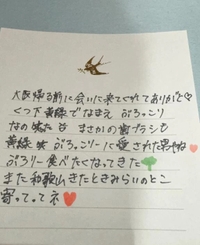 大阪帰る前に会いに来てくれてありがと♡
くつ下黄緑でなまえ ぶろっこり
なの焼た は まさかの歯ブラシも
黄緑 笑 ぶろっこりーに愛された男やね❤️
ぶろりー食べたくなってきた🥦
また和歌山きたときみらいのとこ
寄ってってネ❤️